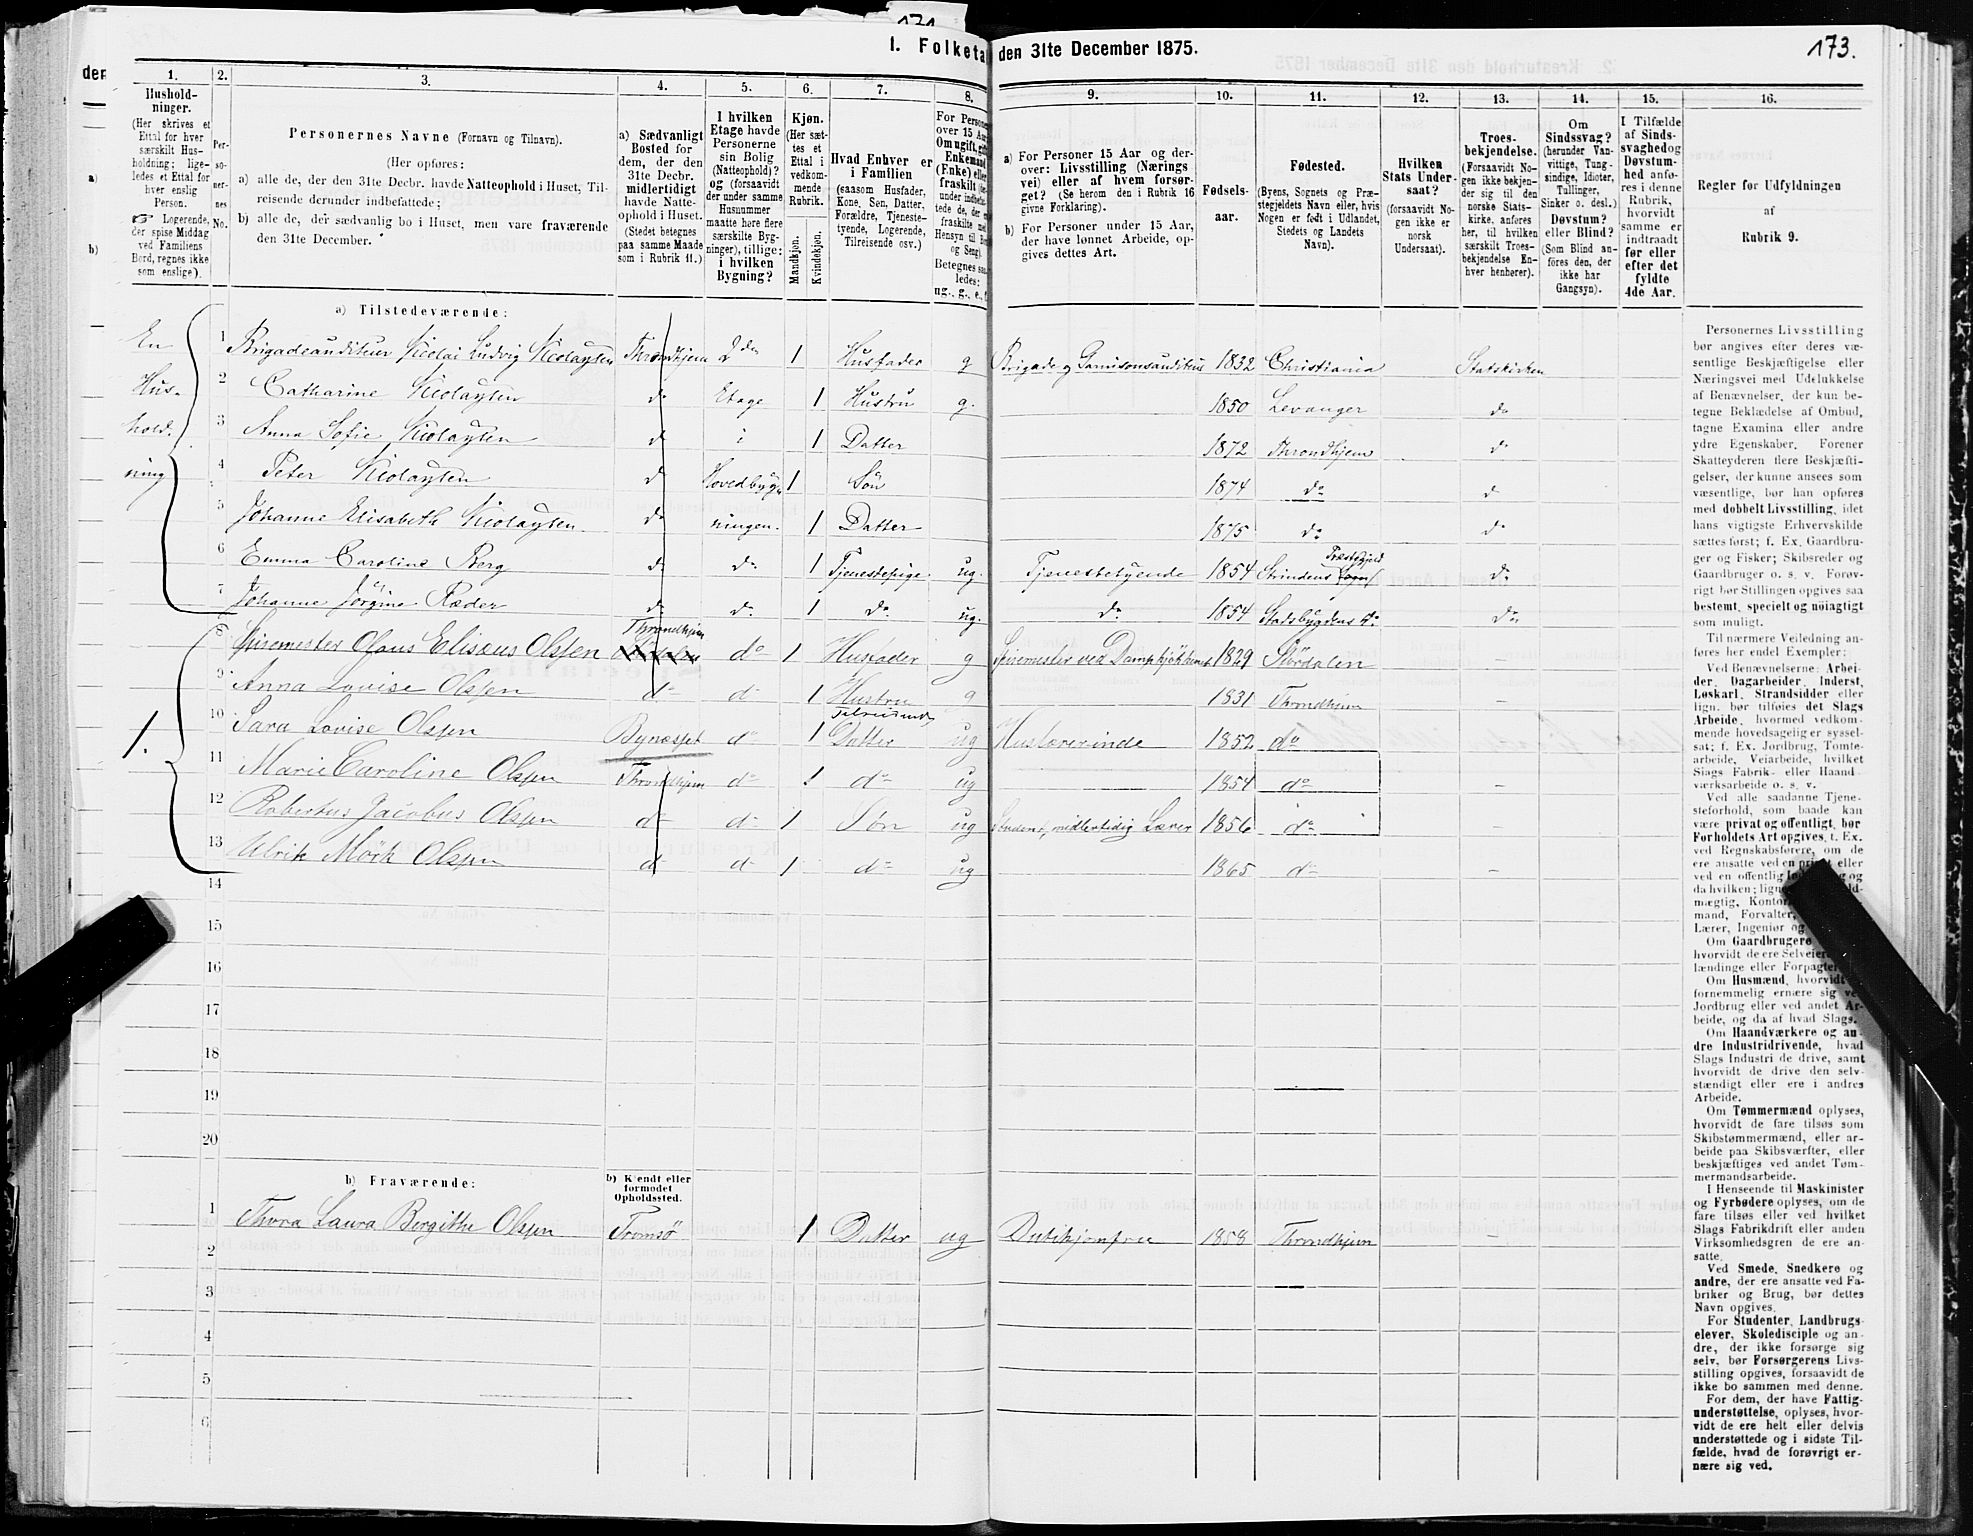 171
173.
I. Folketa
den 31te December 1875.
1. 2. 3. 4. 5. 6. 7. 8. 9. 10. 11. 12. 13. 14. 15. 16.
Husholdninger.
(Her skrives et Ettal for hver særskilt Husholdning; ligeledes et Ettal for hver enslig Person.
☞ Logerende, der spise Middag ved Familiens Bord, regnes ikke som enslige).
Personernes No.
Personernes Navne (Fornavn og Tilnavn).
(Her opføres:
a) alle de, der den 31te Decbr. havde Natteophold i Huset, Tilreisende derunder indbefattede;
b) alle de, der sædvanlig bo i Huset, men vare fraværende den 31te December.
a) Sædvanligt Bosted for dem, der den 31te Decbr. midlertidigt havde Natteophold i Huset. (Stedet betegnes paa samme Maade som i Rubrik 11.)
I hvilken Etage havde Personerne sin Bolig (Natteophold)? og (forsaavidt der under samme Husnummer maatte høre flere særskilte Bygninger), tillige: i hvilken Bygning?
Kjøn.
(Her sættes et Ettal i vedkommende Rubrik.
Mandkjøn. Kvindekjøn.
Hvad Enhver er i Familien
(saasom Husfader, Kone, Søn, Datter, Forældre, Tjenestetyende, Logerende, Tilreisende osv.)
a) For Personer 15 Aar og derover: Livsstilling (Næringsvei) eller af hvem forsørget? (Se herom den i Rubrik 16 givne Forklaring).
b) For Personer under 15 Aar, der have lønnet Arbeide, opgives dettes Art.
Fødselsaar.
Fødested.
(Byens, Sognets og Præstegjeldets Navn eller, hvis Nogen er født i Udlandet, Stedets og Landets Navn).
Hvilken Stats Undersaat?
(forsaavidt Nogen ikke er norsk Undersaat).
Troesbekjendelse.
(Forsaavidt Nogen ikke bekjender sig til den norske Statskirke, anføres her, til hvilken særskilt Troesbekjendelse Enhver henhører).
Om Sindssvag? (herunder Vanvittige, Tungsindige, Idioter, Tullinger, Sinker o. desl.) Døvstum? eller Blind? (Som Blind anføres den, der ikke har Gangsyn).
I Tilfælde af Sindssvaghed og Døvstumhed anføres i denne Rubrik, hvorvidt samme er indtraadt før eller efter det fyldte 4de Aar.
Regler før Udfyldningen af Rubrik 9.
a) Tilstedeværende:
En Hus-hold-ning
1 Brigadeauditeur Nicolai Ludvig Nicolaysen Throndhjem 2den 1 Husfader g Brigade og Garnisonsauditeur 1832 Christiania Statskirken
2 Catharine Nicolaysen do Etage 1 Hustru g. 1850 Levanger do
3 Anna Sofie Nicolaysen do i 1 Datter 1872 Throndhjem do
4 Peter Nicolaysen do Hovedbyg 1 Søn 1874 do d
5 Johanne Elisabeth Nicolaysen do ningen. 1 Datter 1875 do do
6 Emma Caroline Berg do do 1 Tjenestepige ug. Tjenestetyende 1854 Strindens Sogn Præstgjeld do
7 Johanne Jørgine Ræder do do 1 do ug. do 1854 Stadsbygdens do do
1.
8 Spisemester Claus Elisæus Olssen Throndhjem do 1 Husfader g Spisemester ved Dampkjøkkenet 1829 Stördalen -
9 Anna Lovise Olssen do d 1 Hustru g 1831 Throndhjem
10 Sara Lovise Olssen Bynæsset do 1 Tilreisende Datter ug Huslærerinde 1852 do
11 Marie Caroline Olssen Throndhjem do 1 do ug 1854 do -
12 Robertus Jacobus Olssen do do 1 Søn ug Student, midlertidig Lærer 1856 do -
13 Ulrik Mörk Olssen d d 1 do ug 1865 do -
14
15
16
17
18
19
20
b) Fraværende:
b) Kjendt eller formodet Opholdssted.
1 Thora Laura Bergithe Olssen Tromsö 1 Datter ug Butikjomfru 1858 Throndhjem -
2
3
4
5
6
Personernes Livsstilling bør angives efter deres væsentlige Beskjæftigelse eller Næringsvei med Udelukkelse af Benævnelser, der kun betegne Beklædelse af Ombud, tagne Examina eller andre ydre Egenskaber. Forener Skatteyderen flere Beskjæftigelser, der kunne ansees som væsentlige, bør han opføres med dobbelt Livsstilling, idet hans vigtigste Erhvervskilde sættes først; f. Ex. Gaardbruger og Fisker; Skibsreder og Gaardbruger o. s. v. Forøvrigt bør Stillingen opgives saa bestemt, specielt og nøiagtigt som muligt.
Til nærmere Veiledning anføres her endel Exempler:
Ved Benævnelserne: Arbeider, Dagarbeider, Inderst, Løskarl, Strandsidder eller lign. bør tilføies det Slags Arbeide, hvormed vedkommende hovedsagelig er sysselsat; f. Ex. Jordbrug, Tomtearbeide, Veiarbeide, hvilket Slags Fabrik- eller Haandværksarbeide o. s. v.
Ved alle saadanne Tjenesteforhold, som baade kan være privat og offentligt, bør Forholdets Art opgives, t. Ex. ved Regnskabsførere, om de ere ansatte ved en
Om Gaardbrugere
Om Husmænd, hvorvidt fornemmelig ernære sig ved Jordbrug eller ved andet Arbeide, og da af hvad Slags.
Om Haandværkere og andre Industridrivende, hvad Slags Industri de drive, samt hvorvidt de drive den selvstændigt eller ere i andres Arbeide.
Om Tømmermænd oplyses, hvorvidt de fare tilsøs som Skibstømmermænd, eller arbeide paa Skibsværfter, eller beskjæftiges ved andet Tømmermandsarbeide.
I Henseende til Maskinister og Fyrbødere oplyses, om de fare tilsøs eller ved hvilket Slags Fabrikdrift eller anden Virksomhedsgren de ere ansatte.
Ved Smede, Snedkere og andre, der ere ansatte ved Fabriker og Brug, bør dettes Navn opgives.
For Studenter, Landbrugselever, Skoledisciple og andre, der ikke forsørge sig selv, bør Forsørgerens Livsstilling opgives, forsaavidt de ikke bo sammen med denne.
For dem, der have Fattigunderstøttelse, oplyses, hvorvidt de ere helt eller delvis understøttede og i sidste Tilfælde, hvad de forøvrigt ernære sig ved.